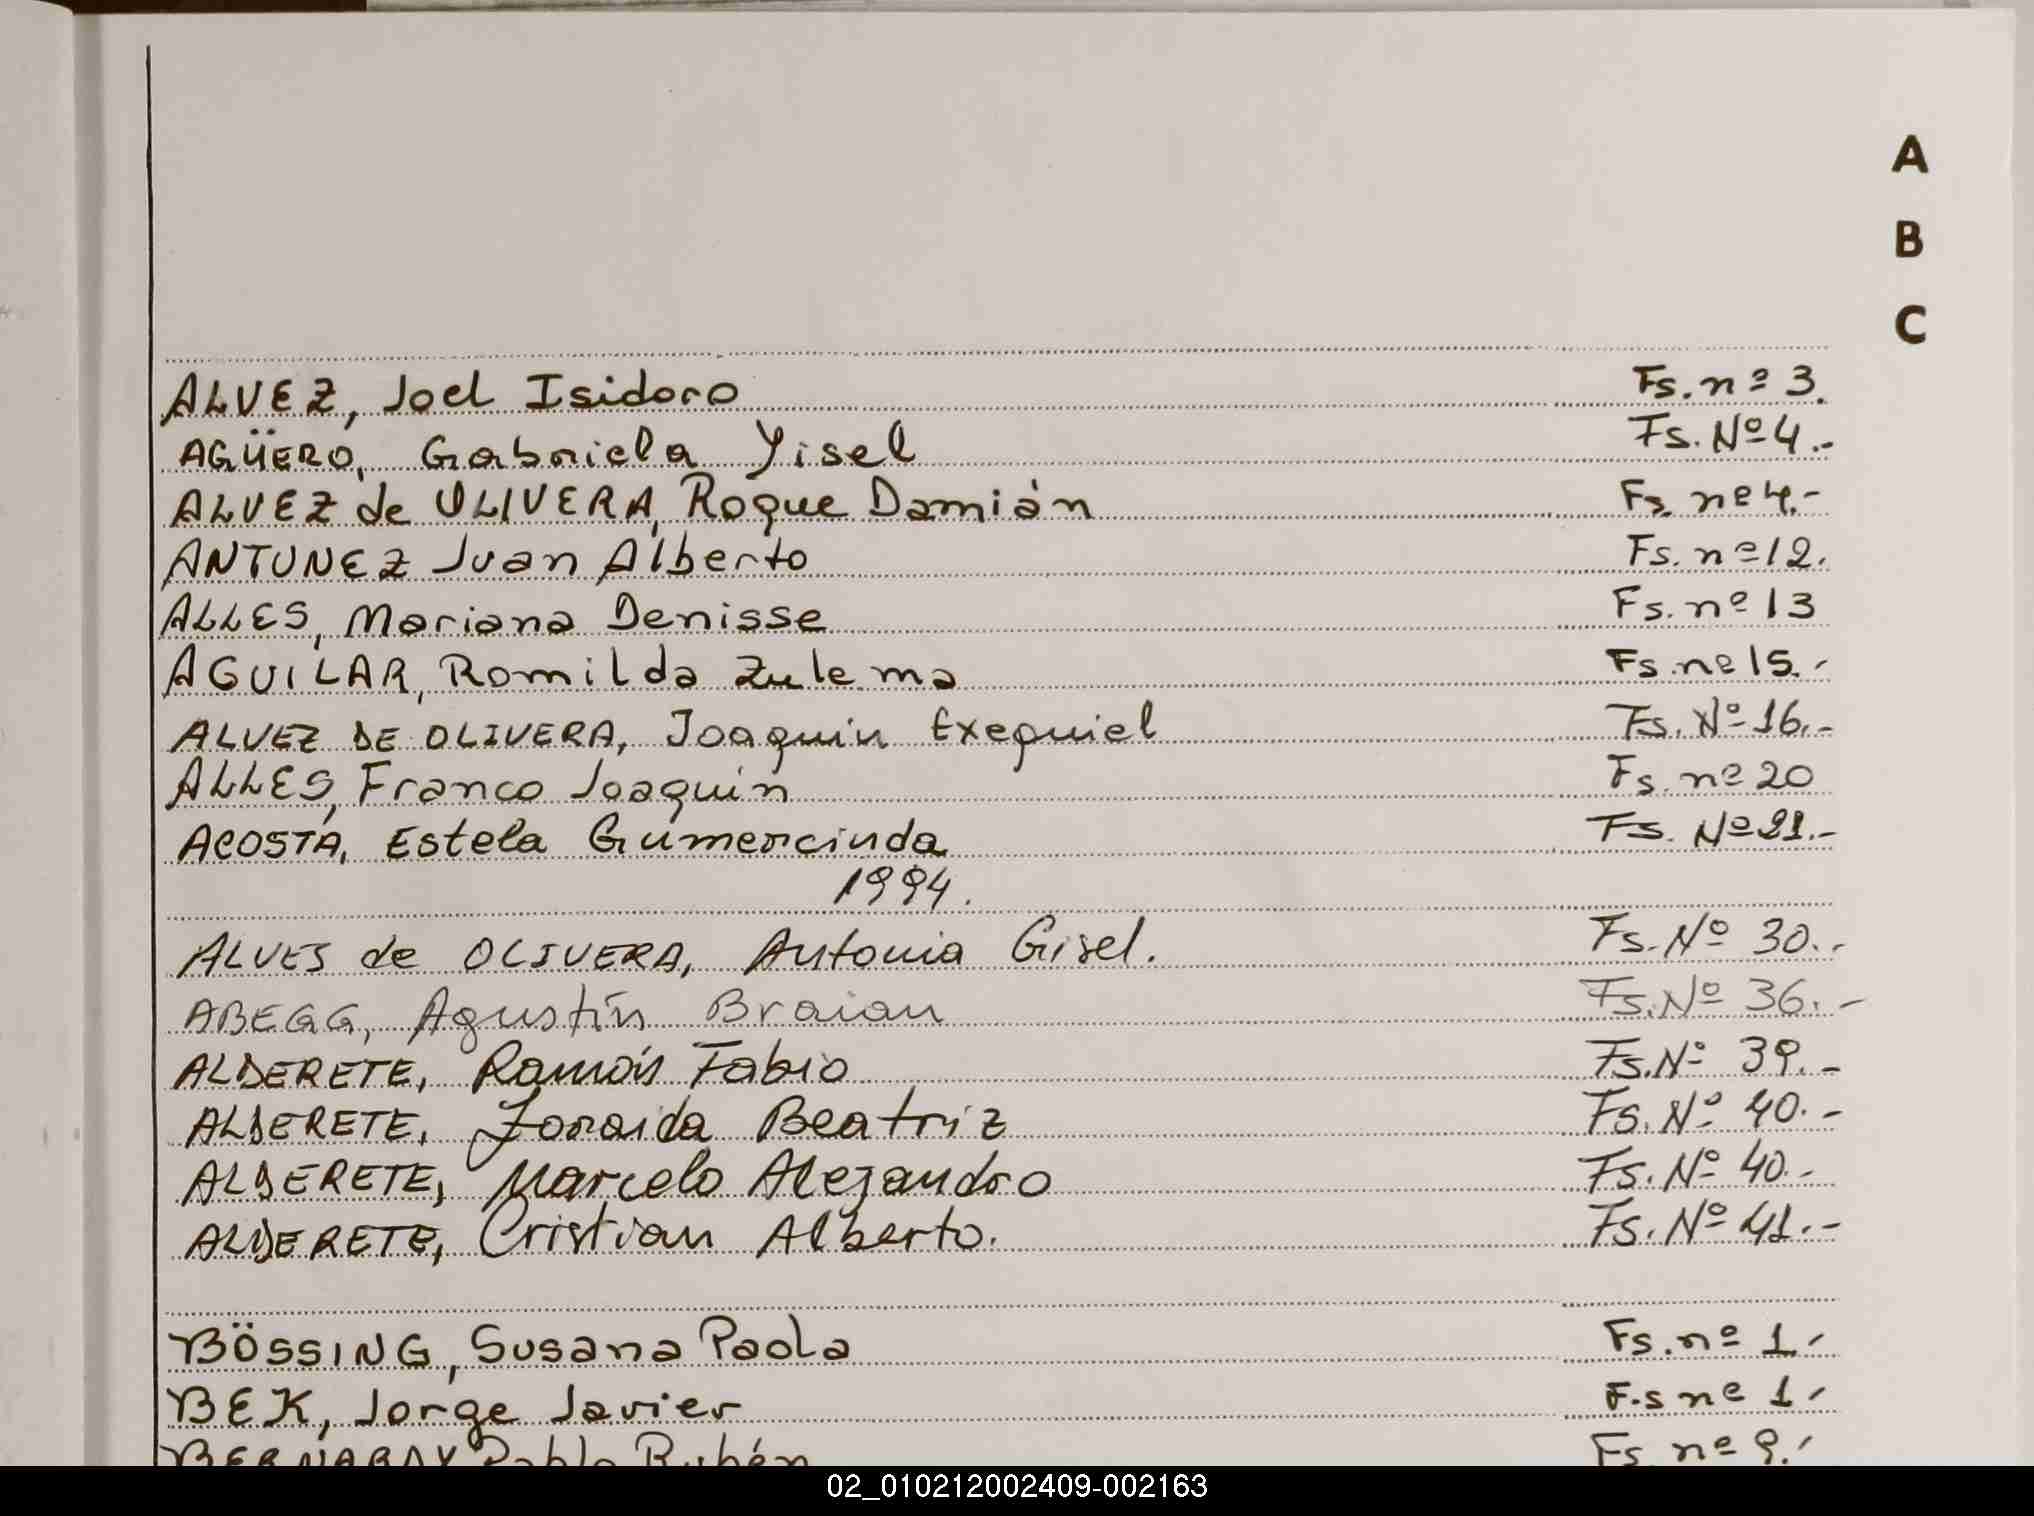 A
B
C
ALVEZ, Joel Isidoro Fs. nº 3.
AGÜERO, Gabriela Yisel Fs. Nº 4.-
ALVEZ de OLIVERA, Roque Damián Fs. nº 4.-
ANTUNEZ Juan Alberto Fs. nº 12.
ALLES, Mariana Denisse Fs. nº 13
AGUILAR, Romilda Zulema Fs. nº 15.-
ALVEZ DE OLIVERA, Joaquin Exequiel Fs. Nº 16.-
ALLES, Franco Joaquín Fs. nº 20
ACOSTA, Estela Gumercinda Fs. Nº 21.-
1994.
ALVES de OLIVERA, Antonia Gisel. Fs. Nº 30.-
ABEGG, Agustín Braian Fs. Nº 36.-
ALDERETE, Ramón Fabio Fs. Nº 39.-
ALDERETE, Zoraida Beatriz Fs. Nº 40.-
ALDERETE, Marcelo Alejandro Fs. Nº 40.-
ALDERETE, Cristian Alberto. Fs. Nº 41.-
BÖSSING, Susana Paola Fs. nº 1.-
BEK, Jorge Javier F.s nº 1.-
Pablo Rubén Fs. nº 9.-
02_010212002409-002163